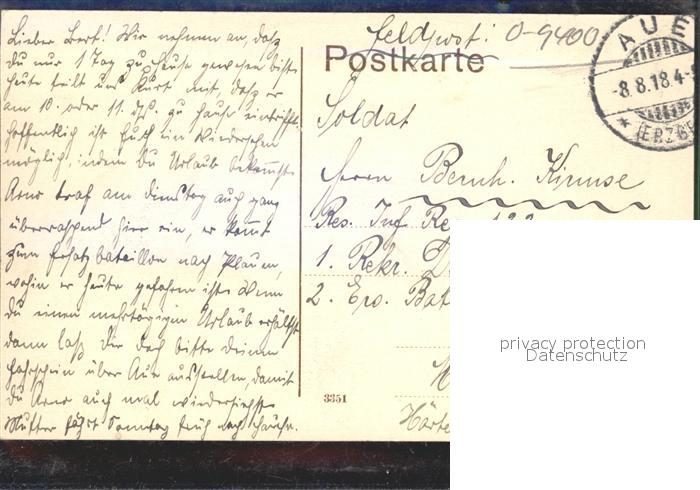 Lieber Bert! Wir nehmen an, daß
du nur 1 Tag zu Hause gewesen bist.
Heute teilt uns Kurt mit, daß er
am 10. oder 11. ds. zu Hause eintrifft.
Hoffentlich ist Euch ein Wiedersehen
möglich, indem Du Urlaub bekommst.
Arno traf am Dienstag auch ganz
überraschend hier ein, er kommt
zum Ersatzbataillon nach Plauen,
wohin er heute gefahren ist. Wenn
du einen mehrtägigen Urlaub erhältst
dann laß Dir doch bitte deinen
Fahrschein über Aue ausstellen, damit
du Arno auch mal wiedersiehst.
Mutter fährt Sonntag früh nach
Feldpost! O-9400
Postkarte
AUE
-8.8.18.4-
* (ERZGE
Soldat
Herrn Bernh. Kruse
Res. Inf Re
1. Rekr. D
2. Ers. Bat
Härte
3351
privacy protection
Datenschutz